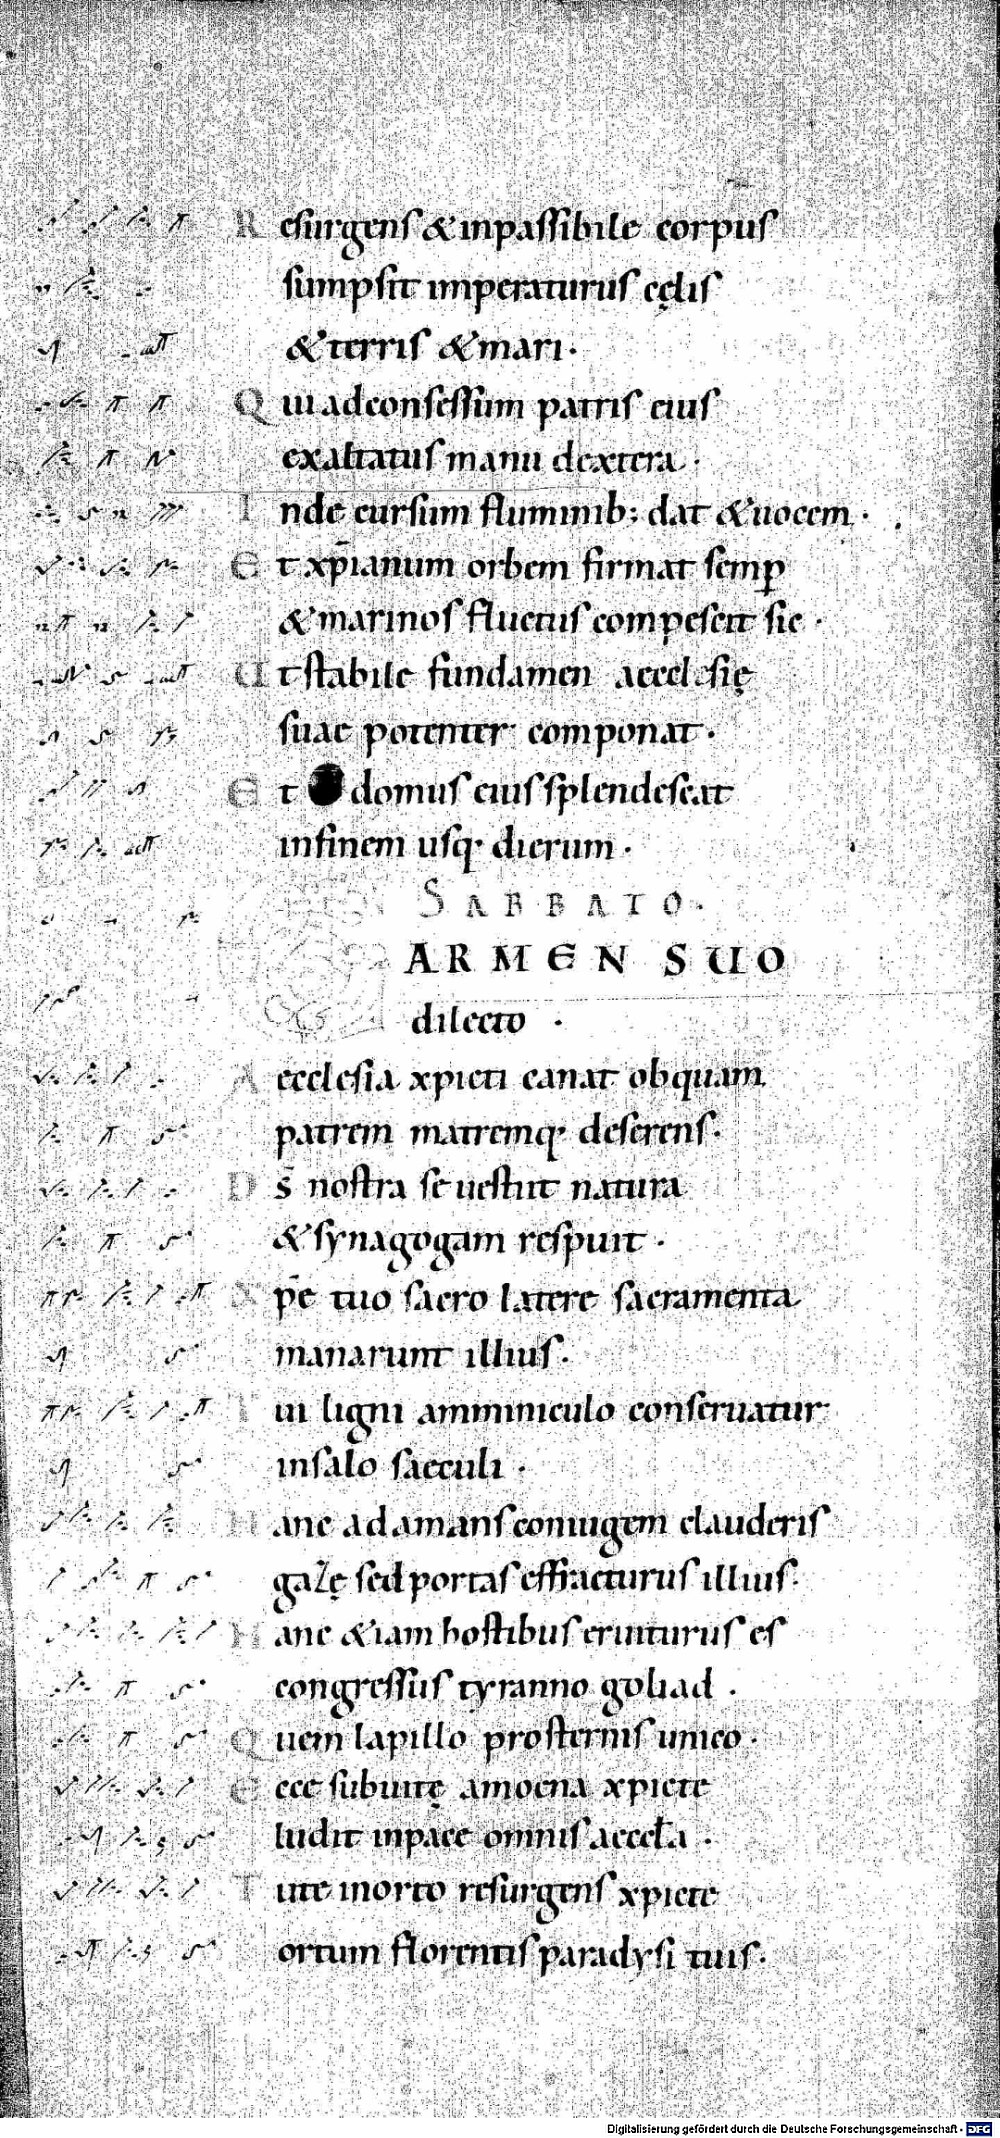 Resurgens & inpassibile corpus
sumpsit imperaturus cęlis
& terris & mari·
Qui adconsessum patris eius
exaltatus manu dextera·
Inde cursum fluminib; dat & uocem·
Et xp̄ianum orbem firmat semp
& marinos fluctus compescit sic·
Ut stabile fundamen aecclesię
suae potenter componat·
Et domus eius splendescat
infinem usq· dierum·
SABBATO·
CARMEN SUO
dilecto ·
Aecclesia xpicti canat obquam
patrem matremq· deserens·
Ds̄ nostra se uestiit natura
& synagogam respuit·
Xp̄e tuo sacro latere sacramenta
manarunt illius·
Tui ligni amminiculo conseruatur
insalo saeculi·
Hanc adamans coniugem clauderis
gazę sed portas effracturus illius·
Hanc & iam hostibus eruiturus es
congressus tyranno goliad ·
Quem lapillo prosternis unico·
Ecce subuitę amoena xpicte
ludit inpace omnis aeccła ·
Tute inorto resurgens xpicte
ortum florentis paradysi tuis·
Digitalisierung gefördert durch die Deutsche Forschungsgemeinschaft · DFG